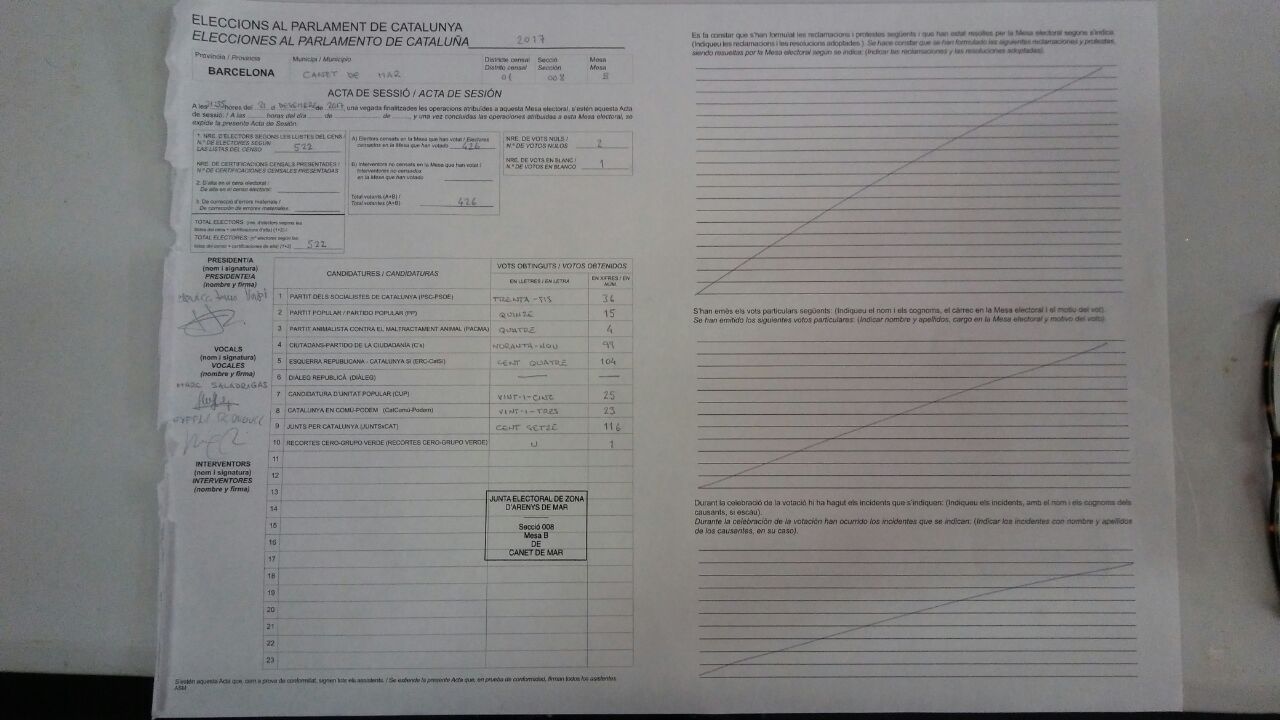 ELECCIONS AL PARLAMENT DE CATALUNYA
ELECCIONES AL PARLAMENTO DE CATALUÑA 2017
Província / Provincia Municipi / Municipio Districte censal Secció Mesa
Distrito censal Sección Mesa
BARCELONA CANET DE MAR 01 008 B
ACTA DE SESSIÓ / ACTA DE SESIÓN
A les 21:35 hores del 21 d DESEMBRE de 2017, una vegada finalitzades les operacions atribuïdes a aquesta Mesa electoral, s'estén aquesta Acta
de sessió. / A las horas del día de de , y una vez concluidas las operaciones atribuidas a esta Mesa electoral, se
expide la presente Acta de Sesión.
1. NRE. D'ELECTORS SEGONS LES LLISTES DEL CENS /
N.º DE ELECTORES SEGÚN
LAS LISTAS DEL CENSO 522
NRE. DE CERTIFICACIONS CENSALS PRESENTADES /
N.º DE CERTIFICACIONES CENSALES PRESENTADAS
2. D'alta en el cens electoral /
De alta en el censo electoral:
3. De correcció d'errors materials /
De corrección de errores materiales:
TOTAL ELECTORS (nre. d'electors segons les
llistes del cens + certificacions d'alta) (1+2) /
TOTAL ELECTORES (n.º electores según las
listas del censo + certificaciones de alta) (1+2) 522
A) Electors censats en la Mesa que han votat / Electores
censados en la Mesa que han votado 426
B) Interventors no censats en la Mesa que han votat /
Interventores no censados
en la Mesa que han votado
Total votants (A+B) /
Total votantes (A+B) 426
NRE. DE VOTS NULS /
N.º DE VOTOS NULOS 2
NRE. DE VOTS EN BLANC /
N.º DE VOTOS EN BLANCO 1
PRESIDENT/A
(nom i signatura)
PRESIDENTE/A
(nombre y firma)
VOCALS
(nom i signatura)
VOCALES
(nombre y firma)
MARC SALADRIGAS
INTERVENTORS
(nom i signatura)
INTERVENTORES
(nombre y firma)
CANDIDATURES / CANDIDATURAS VOTS OBTINGUTS / VOTOS OBTENIDOS
EN LLETRES / EN LETRA EN XIFRES / EN NÚM.
1 PARTIT DELS SOCIALISTES DE CATALUNYA (PSC-PSOE) TRENTA-SIS 36
2 PARTIT POPULAR / PARTIDO POPULAR (PP) QUINZE 15
3 PARTIT ANIMALISTA CONTRA EL MALTRACTAMENT ANIMAL (PACMA) QUATRE 4
4 CIUTADANS-PARTIDO DE LA CIUDADANÍA (C's) NORANTA-NOU 99
5 ESQUERRA REPUBLICANA - CATALUNYA SÍ (ERC-CatSí) CENT QUATRE 104
6 DIÀLEG REPUBLICÀ (DIÀLEG)
7 CANDIDATURA D'UNITAT POPULAR (CUP) VINT-I-CINC 25
8 CATALUNYA EN COMÚ-PODEM (CatComú-Podem) VINT-I-TRES 23
9 JUNTS PER CATALUNYA (JUNTSxCAT) CENT SETZE 116
10 RECORTES CERO-GRUPO VERDE (RECORTES CERO-GRUPO VERDE) U 1
11
12
13
14
15
16
17
18
19
20
21
22
23
JUNTA ELECTORAL DE ZONA
D'ARENYS DE MAR
Secció 008
Mesa B
DE
CANET DE MAR
S'estén aquesta Acta que, com a prova de conformitat, signen tots els assistents. / Se extiende la presente Acta que, en prueba de conformidad, firman todos los asistentes.
ASM
Es fa constar que s'han formulat les reclamacions i protestes següents i que han estat resoltes per la Mesa electoral segons s'indica:
(Indiqueu les reclamacions i les resolucions adoptades.) Se hace constar que se han formulado las siguientes reclamaciones y protestas,
siendo resueltas por la Mesa electoral según se indica: (Indicar las reclamaciones y las resoluciones adoptadas).
S'han emès els vots particulars següents: (Indiqueu el nom i els cognoms, el càrrec en la Mesa electoral i el motiu del vot).
Se han emitido los siguientes votos particulares: (Indicar nombre y apellidos, cargo en la Mesa electoral y motivo del voto).
Durant la celebració de la votació hi ha hagut els incidents que s'indiquen: (Indiqueu els incidents, amb el nom i els cognoms dels
causants, si escau).
Durante la celebración de la votación han ocurrido los incidentes que se indican: (Indicar los incidentes con nombre y apellidos
de los causantes, en su caso).